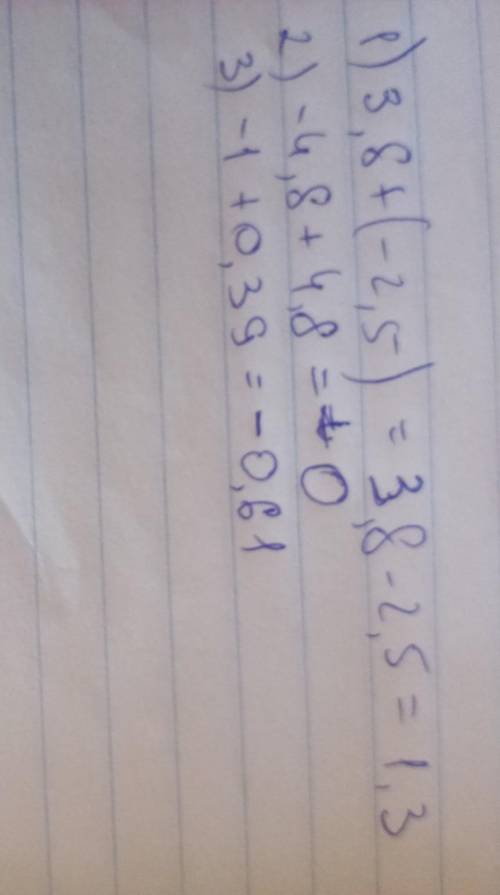 1) 3,8+(-2,5) = 3,8-2,5=1,3
2) -4,8+4,8=0
3) -1+0,39=-0,61